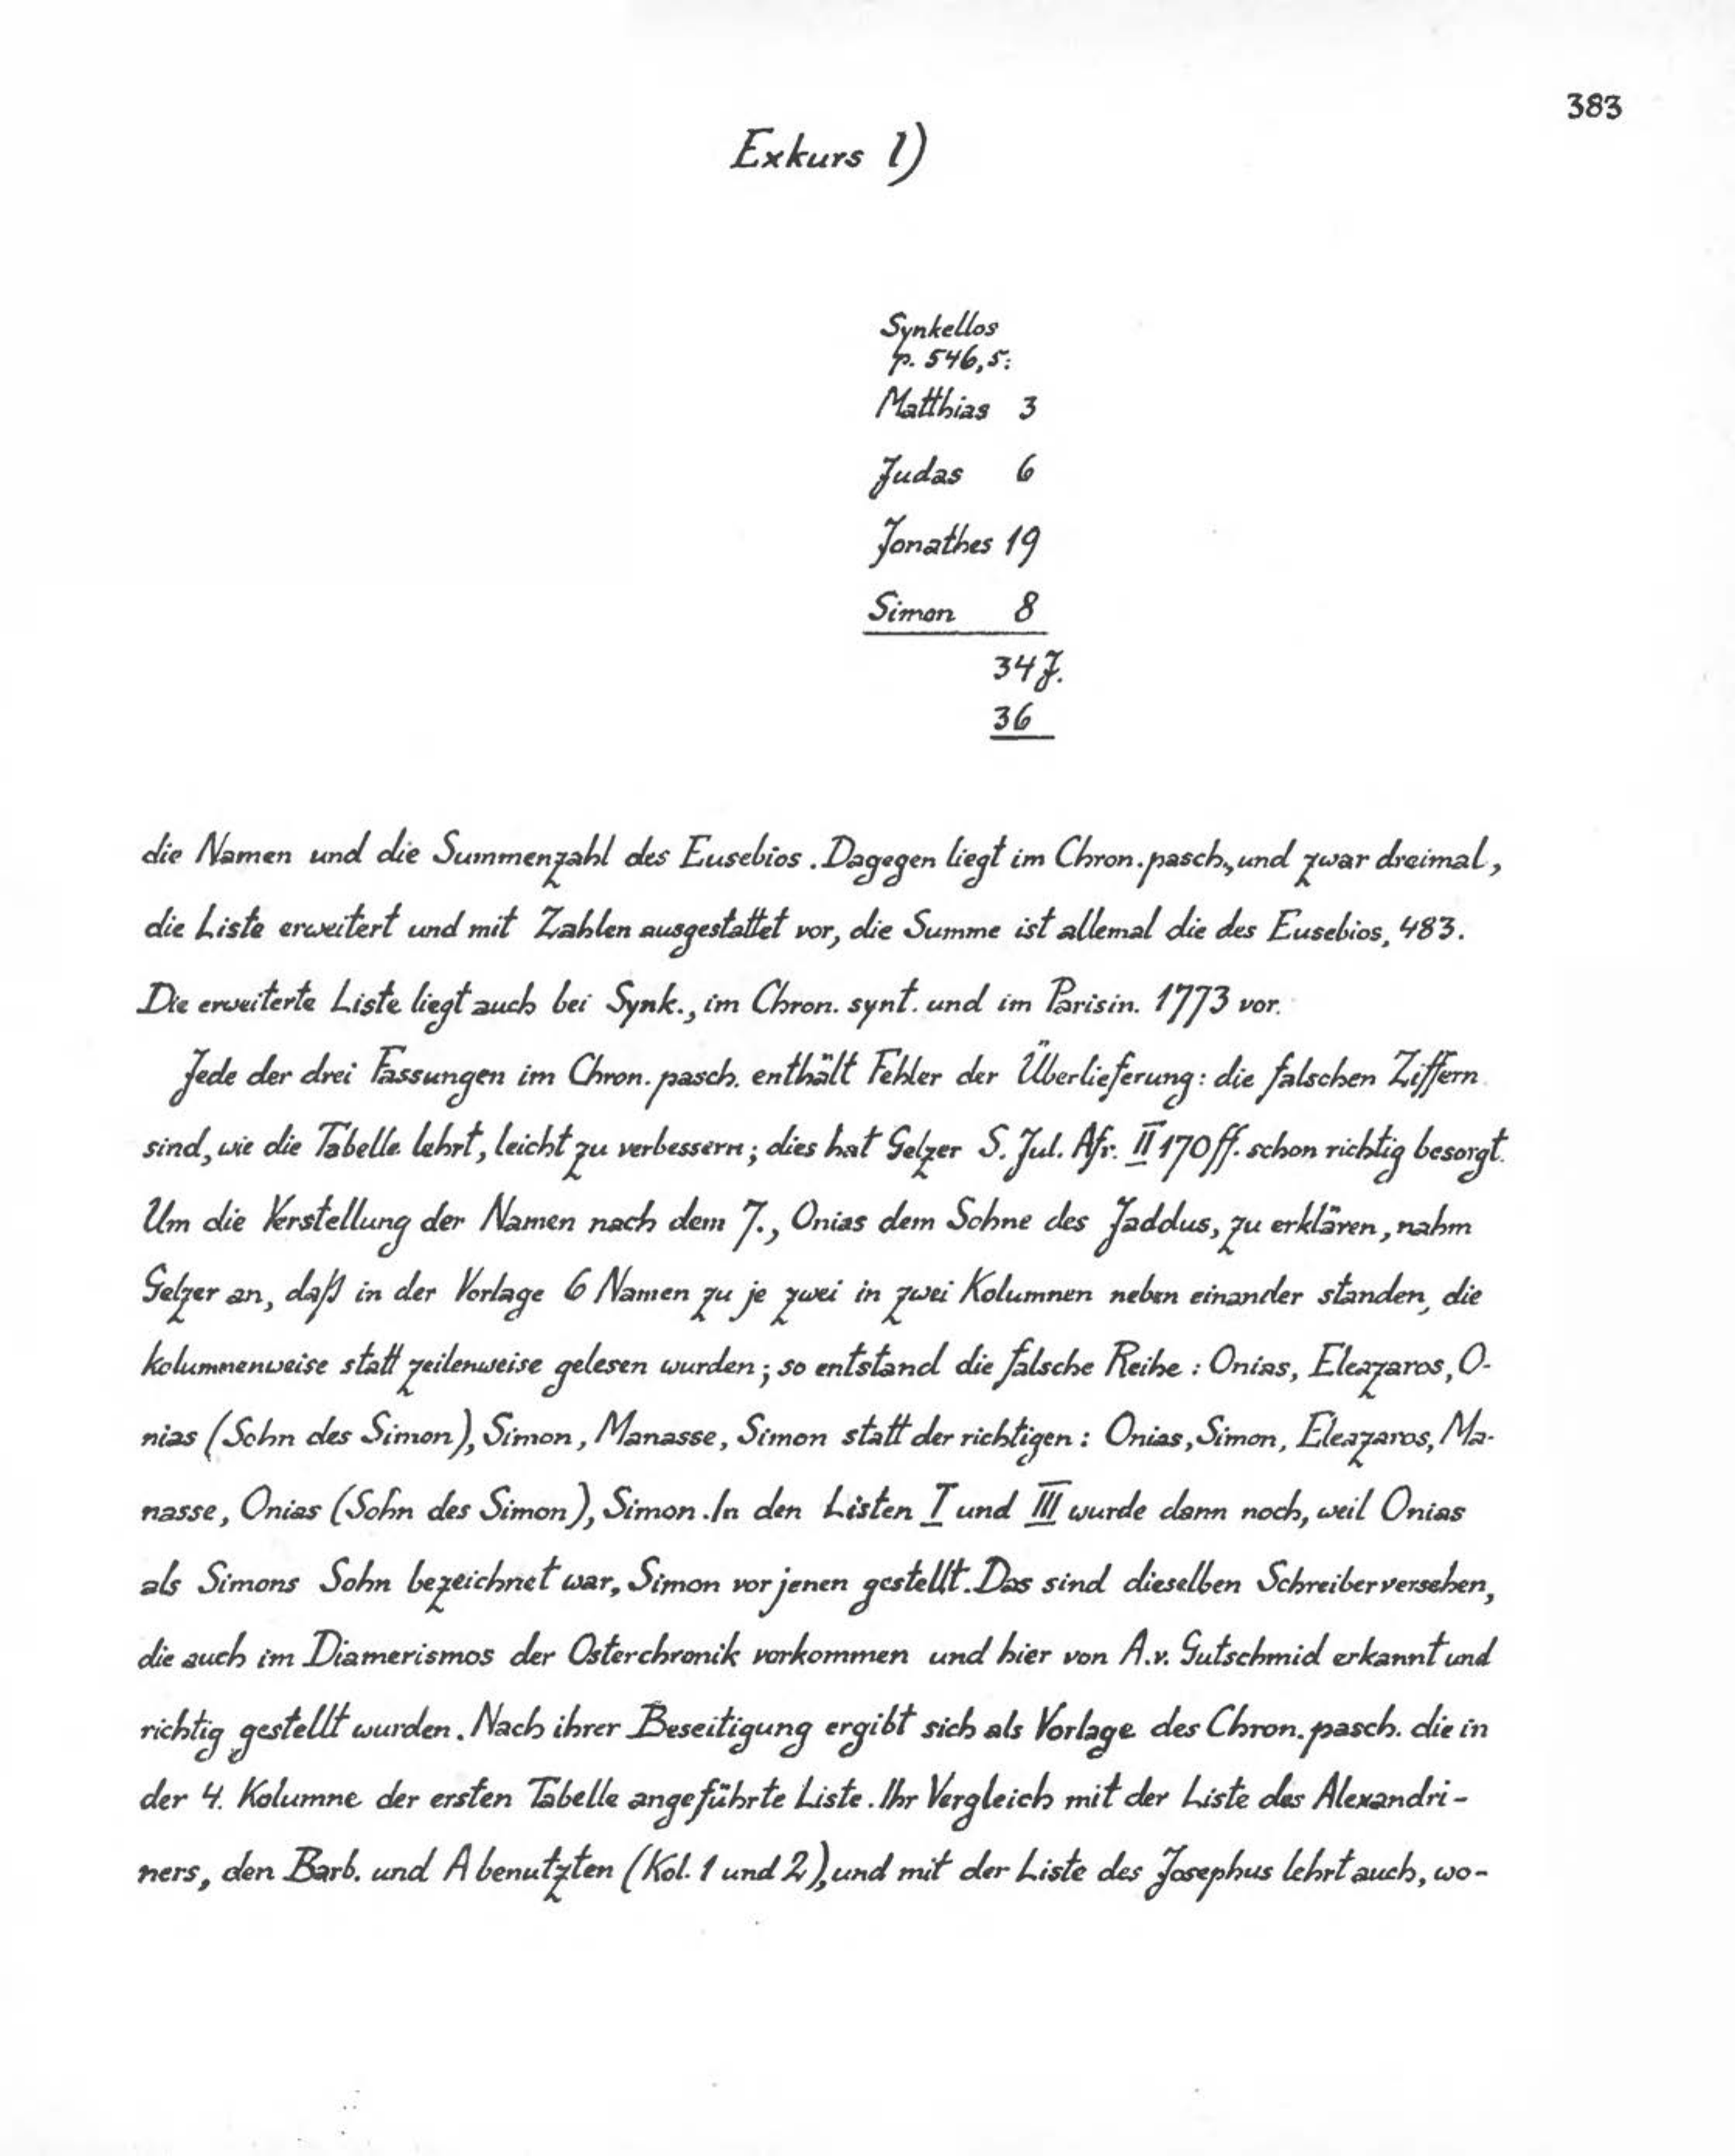 383
Exkurs l)
Synkellos
p. 546,5:
Matthias 3
Judas 6
Jonathes 19
Simon 8
34 J.
36
die Namen und die Summenzahl des Eusebios. Dagegen liegt im Chron. pasch., und zwar dreimal,
die Liste erweitert und mit Zahlen ausgestattet vor, die Summe ist allemal die des Eusebios, 483.
Die erweiterte Liste liegt auch bei Synk., im Chron. synt. und im Parisin. 1773 vor.
Jede der drei Fassungen im Chron. pasch. enthält Fehler der Überlieferung: die falschen Ziffern
sind, wie die Tabelle lehrt, leicht zu verbessern; dies hat Gelzer S. Jul. Afr. II 170 ff. schon richtig besorgt.
Um die Verstellung der Namen nach dem 7., Onias dem Sohne des Jaddus, zu erklären, nahm
Gelzer an, daß in der Vorlage 6 Namen zu je zwei in zwei Kolumnen neben einander standen, die
kolumnenweise statt zeilenweise gelesen wurden; so entstand die falsche Reihe: Onias, Eleazaros, O-
nias (Sohn des Simon), Simon, Manasse, Simon statt der richtigen: Onias, Simon, Eleazaros, Ma-
nasse, Onias (Sohn des Simon), Simon. In den Listen I und III wurde dann noch, weil Onias
als Simons Sohn bezeichnet war, Simon vor jenen gestellt. Das sind dieselben Schreiberversehen,
die auch im Diamerismos der Osterchronik vorkommen und hier von A. v. Gutschmid erkannt und
richtig gestellt wurden. Nach ihrer Beseitigung ergibt sich als Vorlage des Chron. pasch. die in
der 4. Kolumne der ersten Tabelle angeführte Liste. Ihr Vergleich mit der Liste des Alexandri-
ners, den Barb. und A benutzten (Kol. 1 und 2), und mit der Liste des Josephus lehrt auch, wo-